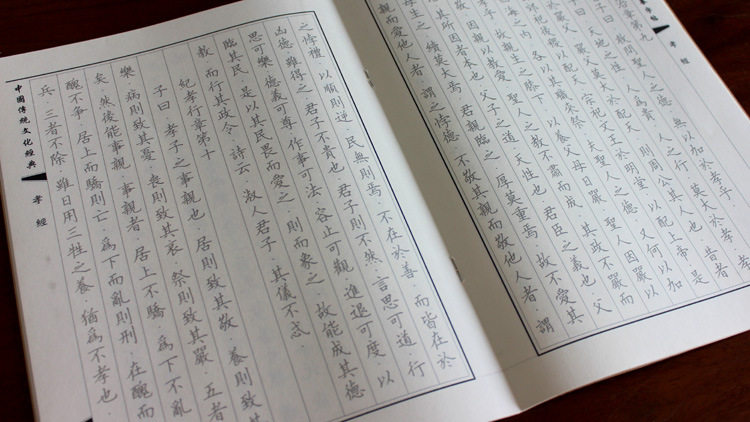 孝經
章第九
敢問聖人之德 無以加於孝乎
曰 天地之性 人為貴 人之行 莫大於孝 孝
於嚴父 嚴父莫大於配天 則周公其人也 昔者
郊祀后稷以配天 宗祀文王於明堂 以配上帝 是
海之內 各以其職來祭 夫聖人之德 又何以加
孝乎 故親生之膝下 以養父母日嚴 聖人因嚴以
敬 因親以教愛 聖人之教不肅而成 其政不嚴而
其所因者本也 父子之道 天性也 君臣之義也 父
母生之 續莫大焉 君親臨之 厚莫重焉 故不愛其
親而愛他人者 謂之悖德 不敬其親而敬他人者 謂
之悖禮 以順則逆 民無則焉 不在於善 而皆在於
凶德 雖得之 君子不貴也 君子則不然 言思可道 行
思可樂 德義可尊 作事可法 容止可觀 進退可度 以
臨其民 是以其民畏而愛之 則而象之 故能成其德
教 而行其政令 詩云 淑人君子 其儀不忒
紀孝行章第十
子曰 孝子之事親也 居則致其敬 養則致其
樂 病則致其憂 喪則致其哀 祭則致其嚴 五者
矣 然後能事親 事親者 居上不驕 為下不亂
醜不爭 居上而驕則亡 為下而亂則刑 在醜而
兵 三者不除 雖日用三牲之養 猶為不孝也
中國傳統文化經典 孝經